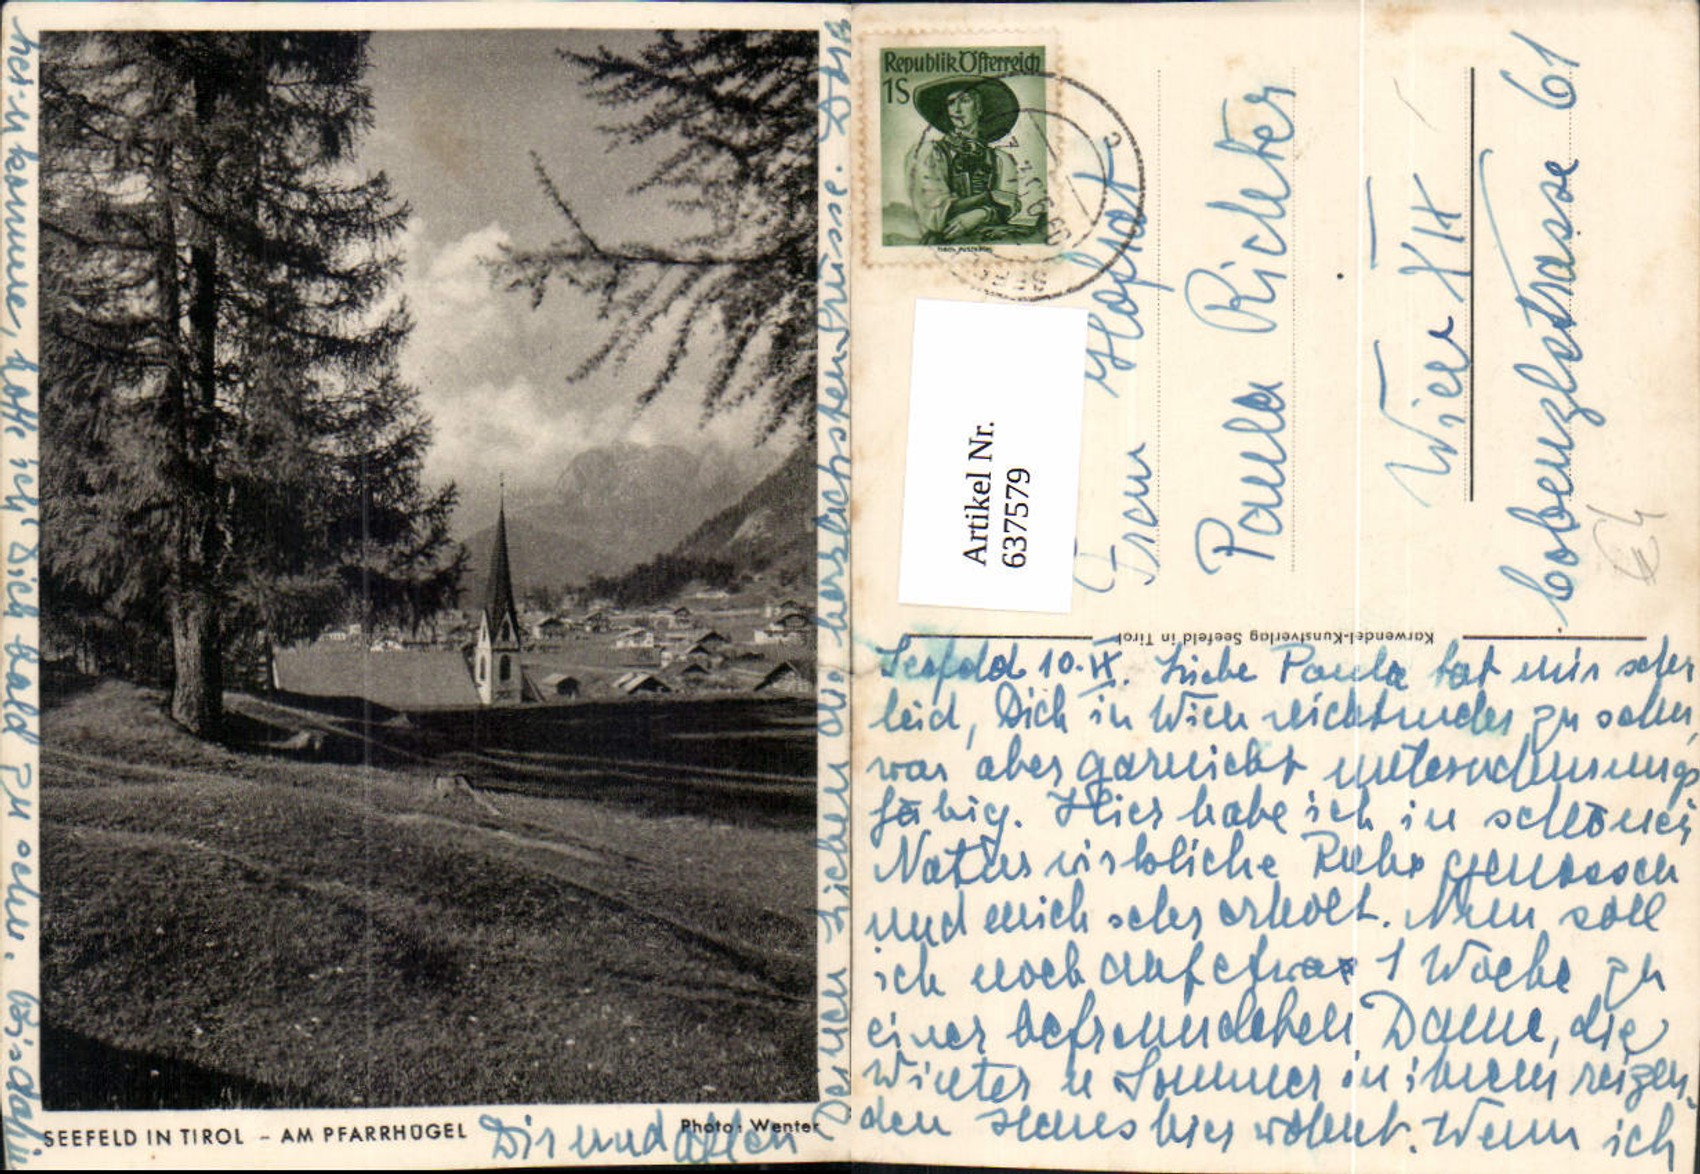 SEEFELD IN TIROL – AM PFARRHÜGEL
Photo: Wenter
Republik Österreich
1S
Artikel Nr.
637579
Frau Hofrat
Paula Richter
Wien XIX
Cobenzlstrasse 61
Karwendel-Kunstverlag Seefeld in Tirol
Seefeld 10.IX. Liebe Paula tat mir sehr
leid, Dich in Wien nicht mehr zu sehen,
war aber garnicht unternehmungs
fähig. Hier habe ich in schöner
Natur wirkliche Ruhe genossen
und mich sehr erholt. Nun soll
ich noch auf etwa 1 Woche zu
einer befreundeten Dame, die
Winter u Sommer in ihrem reizen,
den Haus hier wohnt. Wenn ich
her-unkomme, hoffe ich Dich bald zu sehen. Bis dahin
Dir und allen
Deinen Lieben die herzlichsten Grüsse.